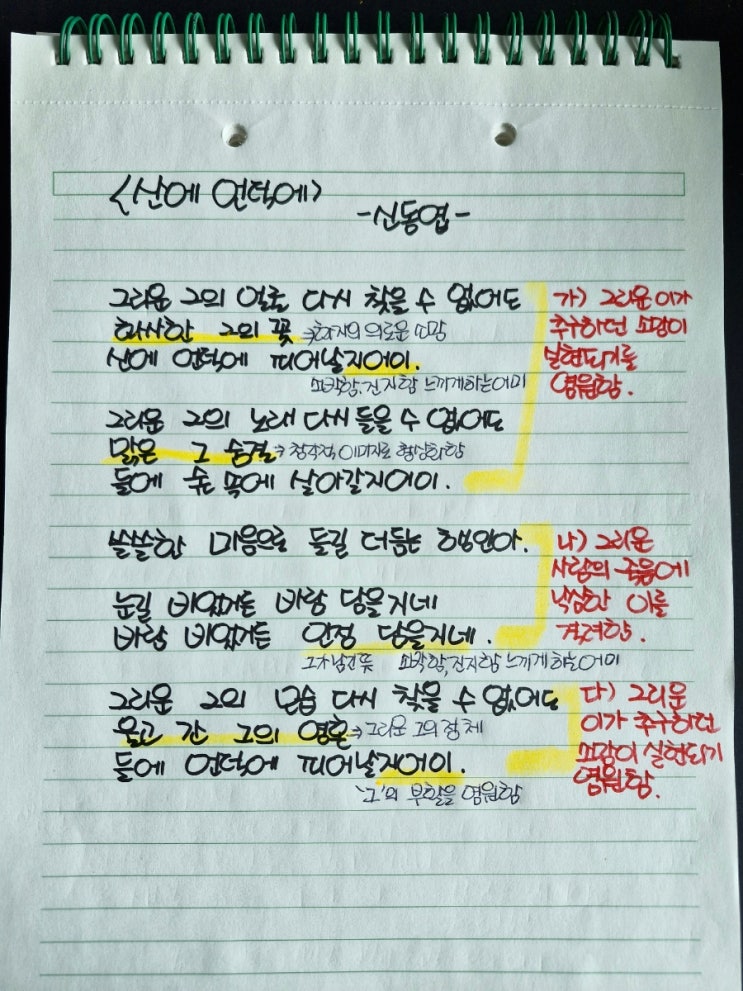 <산에 언덕에>
-신동엽-
그리운 그의 얼굴 다시 찾을 수 없어도
화사한 그의 꽃 →화자의 의로운 소망
산에 언덕에 피어날지어이.
소박함, 진지함 느끼게하는어미
그리운 그의 노래 다시 들을 수 없어도
맑은 그 숨결 → 청각적 이미지로 형상화함
들에 숲 속에 살아갈지어이.
가) 그리운 이가
추구하던 소망이
실현되기를
염원함.
쓸쓸한 마음으로 들길 더듬는 행인아.
눈길 비었거든 바람 담을지네
바람 비었거든 인정 담을지네.
그가 남긴 뜻
소박함, 진지함 느끼게하는어미
나) 그리운
사람의 죽음에
낙심한 이를
격려함.
그리운 그의 모습 다시 찾을 수 없어도
울고 간 그의 영혼 →그리운 그의 정체
들에 언덕에 피어날지어이.
'그'의 부활을 염원함
다) 그리운
이가 추구하던
소망이 실현되기
염원함.